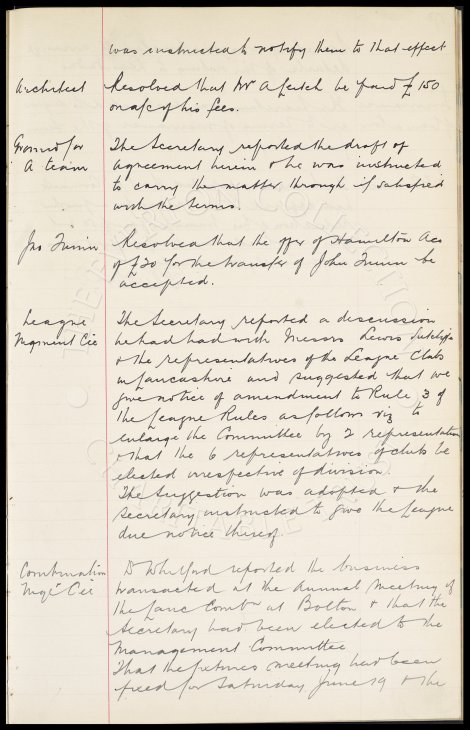 was instructed to notify them to that effect
Architect
Resolved that Mr A Leitch be paid £150
on a/c of his fees.
Ground for
A team
The Secretary reported the draft of
agreement herein & he was instructed
to carry the matter through if satisfied
with the terms.
Jno Quinn
Resolved that the offer of Hamilton Acs
of £20 for the transfer of John Quinn be
accepted.
League
Mgment Cie
The Secretary reported a discussion
he had had with Messrs Lewis Sutcliffe
& the representatives of the League Clubs
in Lancashire and suggested that we
give notice of amendment to Rule 3 of
the League Rules as follows viz to
enlarge the Committee by 2 representatives
& that the 6 representatives of clubs be
elected irrespective of division.
The suggestion was adopted & the
Secretary instructed to give the League
due notice thereof
Combination
Mngt Cie
Dr Whitford reported the business
transacted at the Annual Meeting of
the Lanc Combn at Bolton & that the
Secretary had been elected to the
Management Committee
That the fixtures meeting had been
fixed for Saturday June 19 & the